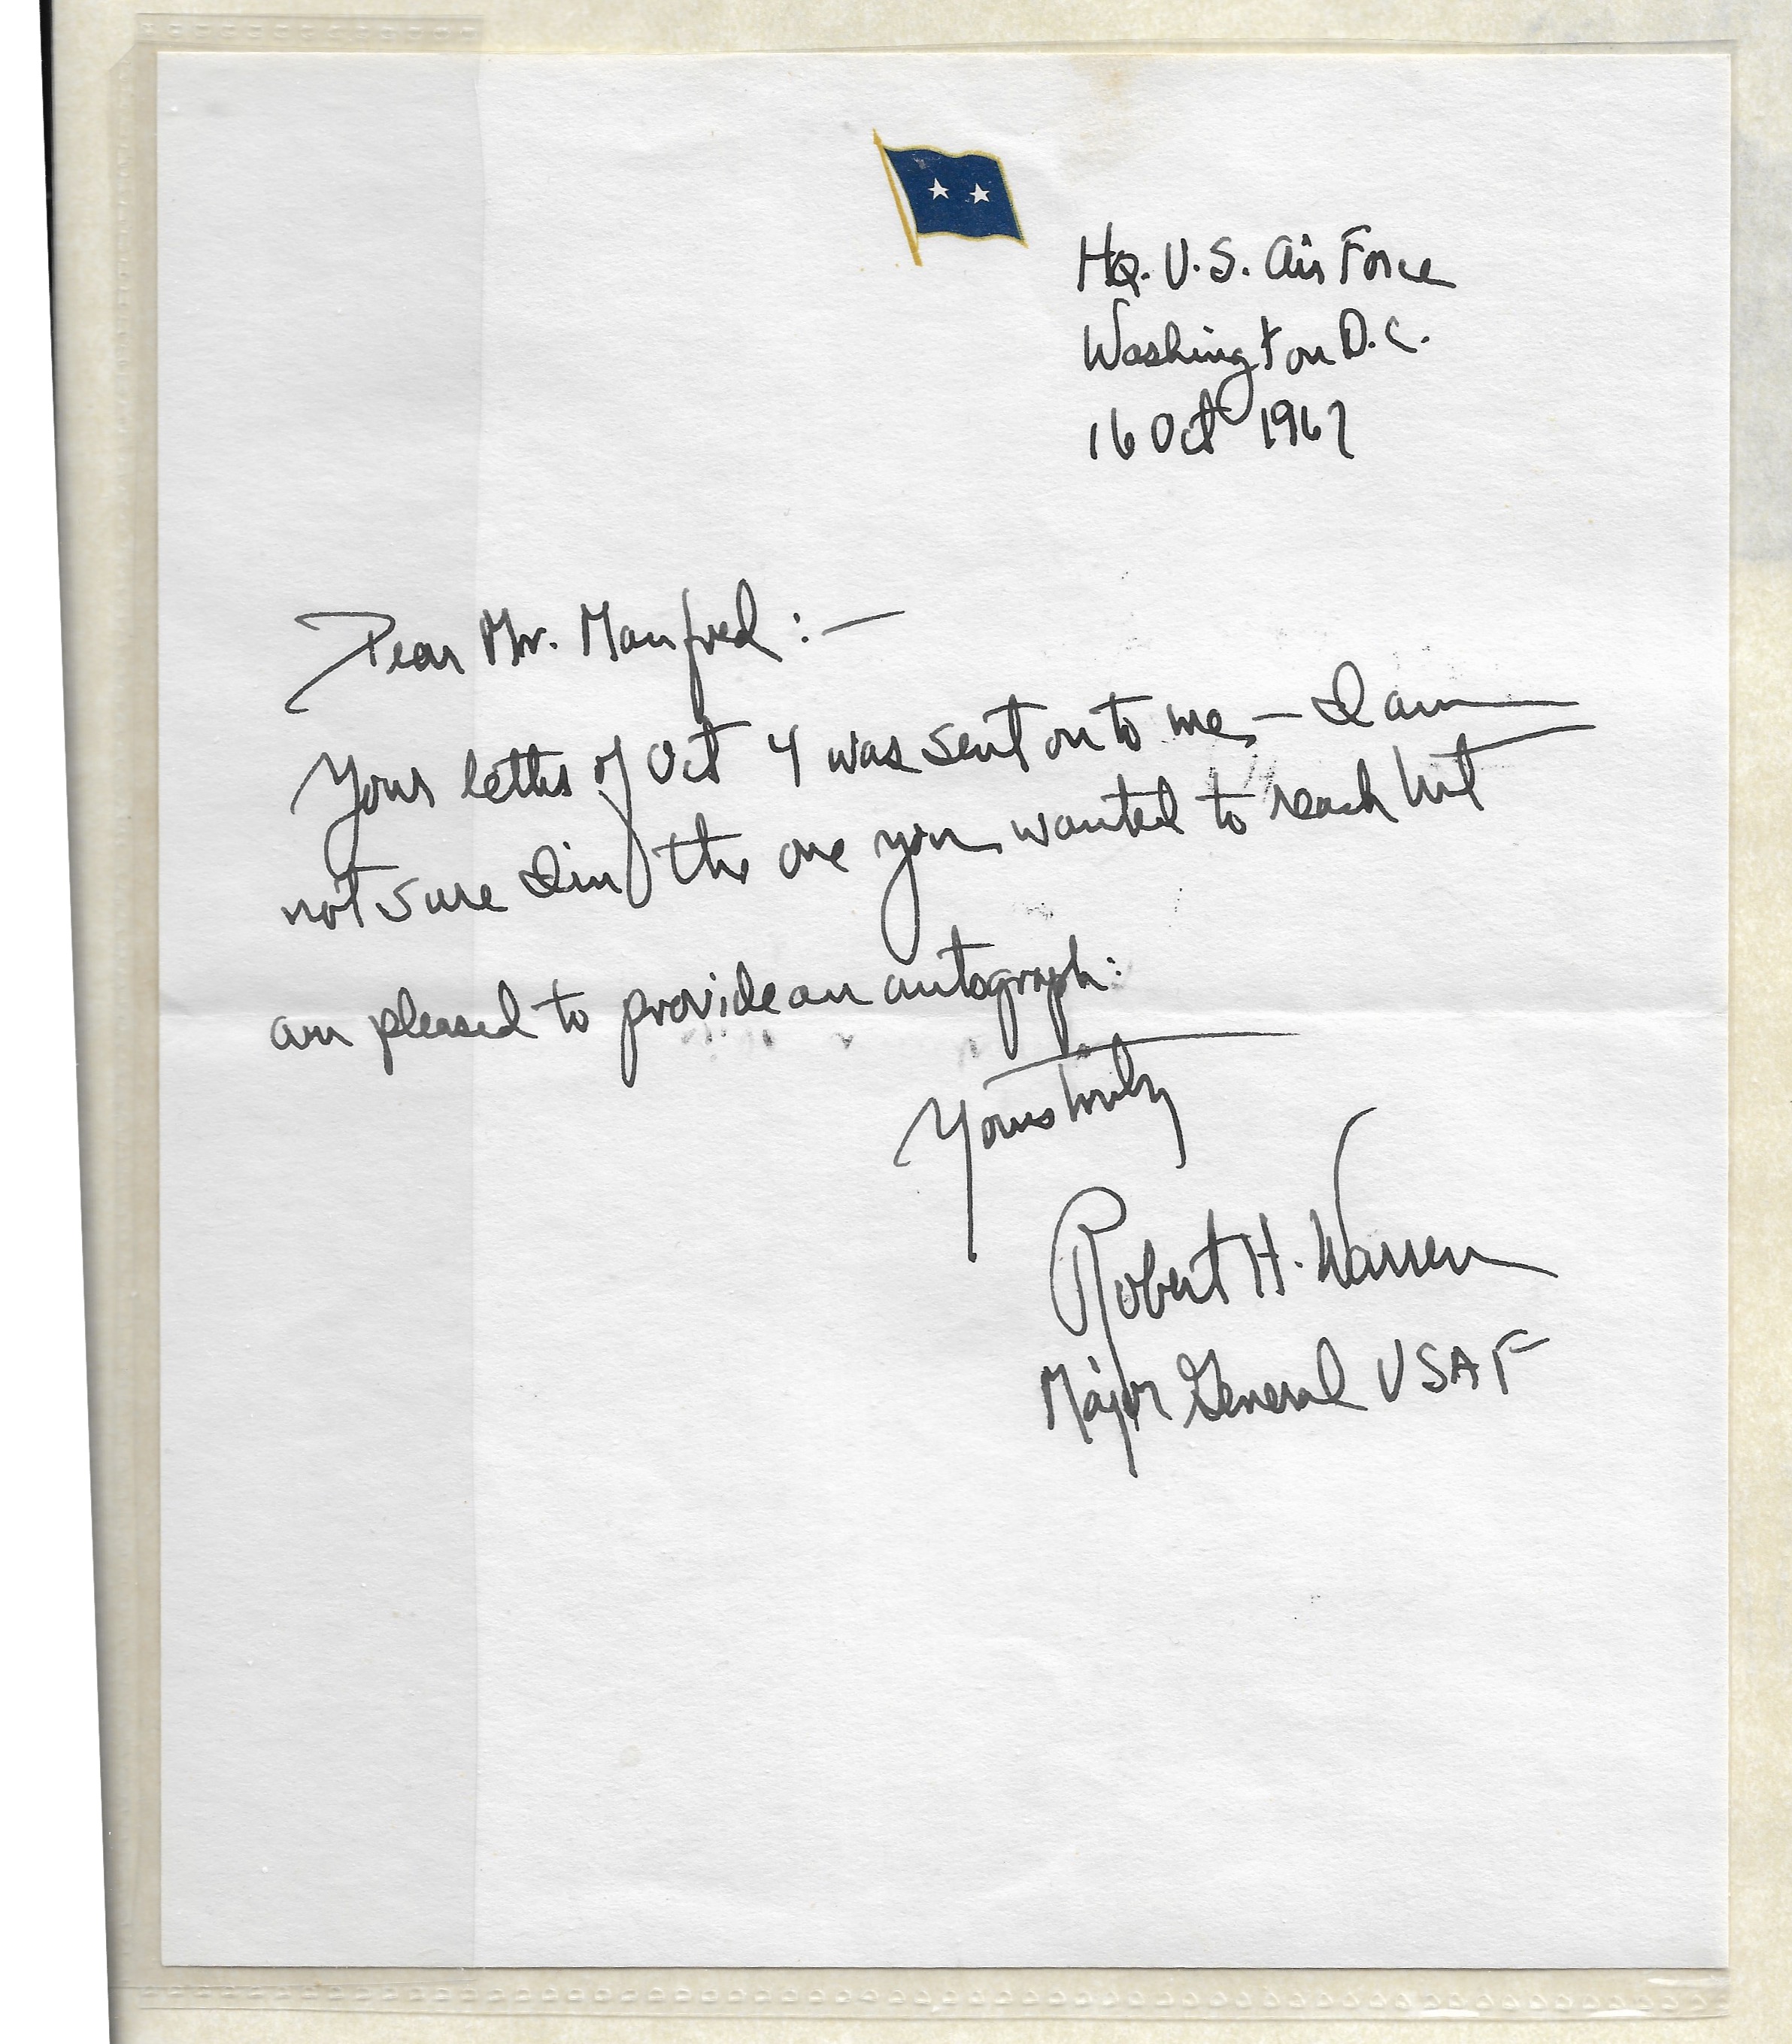 Hq. U.S. Air Force
Washington D.C.
16 Oct 1967
Dear Mr. Manfred :—
Your letter of Oct 4 was sent on to me, — I am
not sure I'm the one you wanted to reach but
am pleased to provide an autograph:
Yours truly
Robert H. Warren
Major General USAF